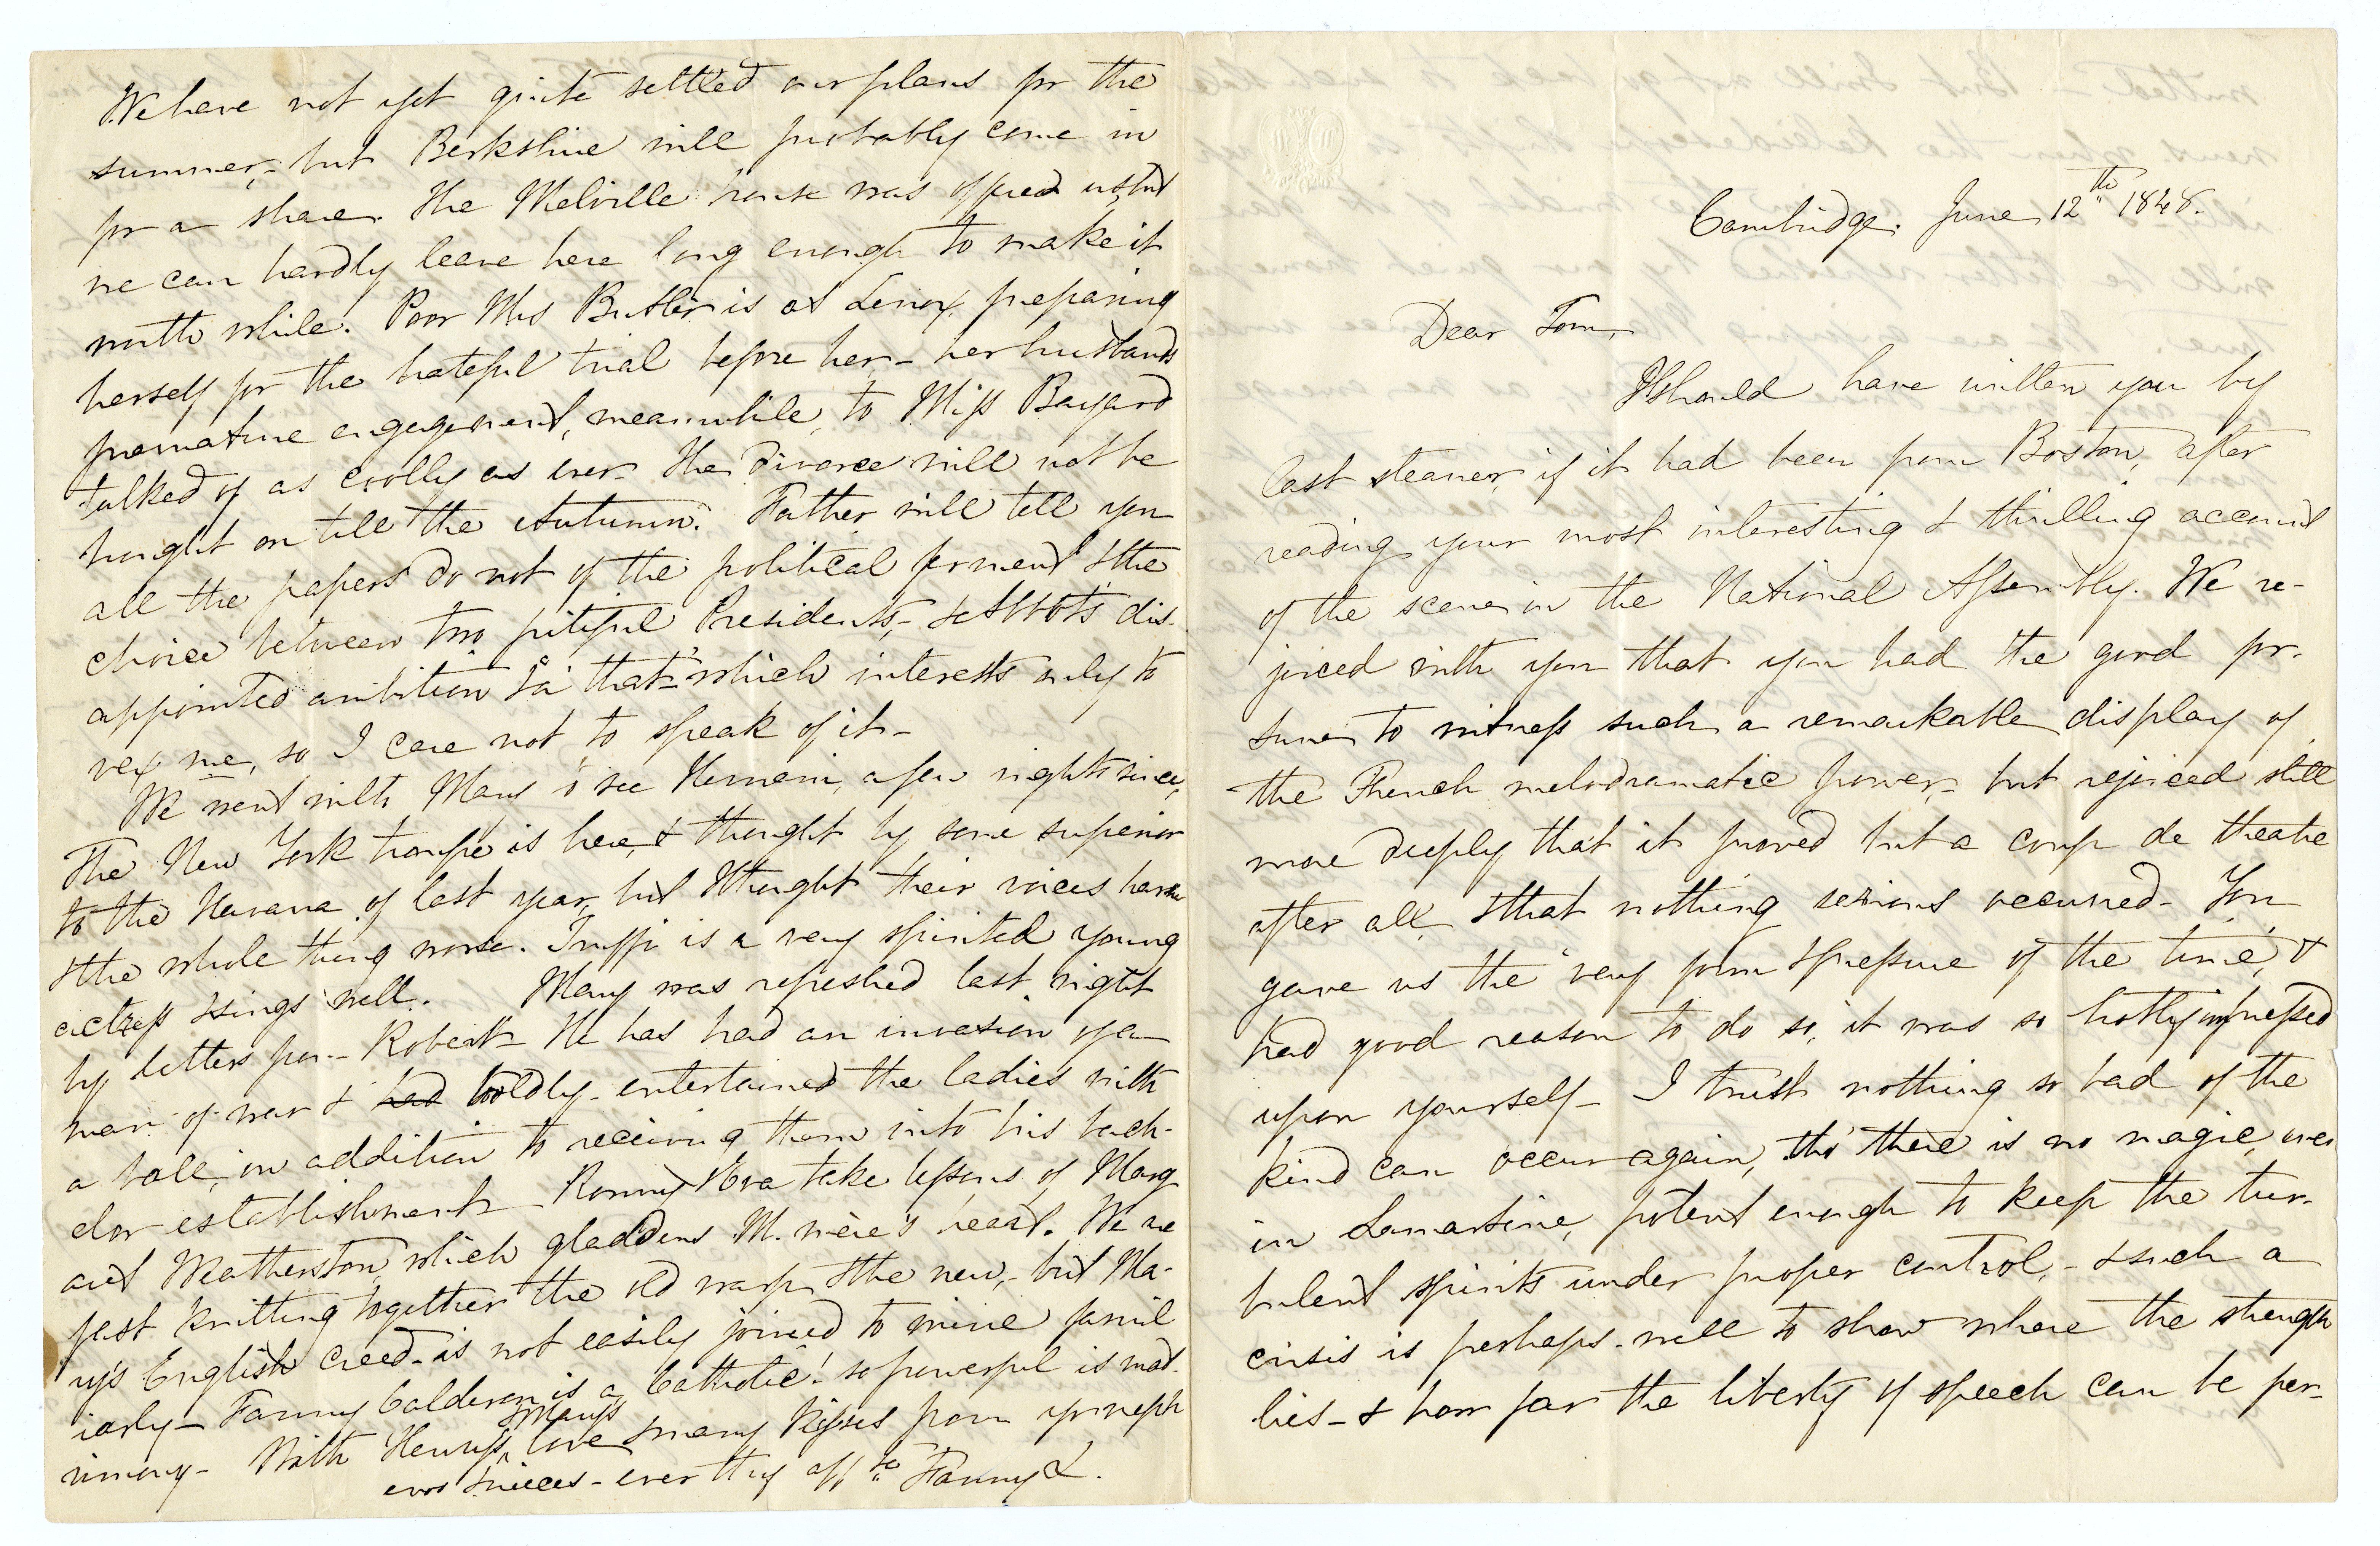 Cambridge. June 12th 1848.
Dear Tom,
I should have written you by
last steamer, if it had been from Boston, after
reading your most interesting & thrilling account
of the scene in the National Assembly. We re-
joiced with you that you had the good for-
tune to witness such a remarkable display of
the French melodramatic power, – but rejoiced still
more deeply that it proved but a coup de theatre
after all, & that nothing serious occurred – You
gave us the "very form & pressure of the time", &
had good reason to do so, it was so hotly impressed
upon yourself – I trust nothing so bad of the
kind can occur again, tho' there is no magic, even
in Lamartine, potent enough to keep the tur-
bulent spirits under proper control, – & such a
crisis is perhaps well to show where the strength
lies – & how far the liberty of speech can be per-
We have not yet quite settled our plans for the
summer, – but Berkshire will probably come in
for a share. The Melville house was offered us, but
we can hardly leave here long enough to make it
worth while. Poor Mrs Butler is at Lenox, preparing
herself for the hateful trial before her, – her husband's
premature engagement, meanwhile, to Miss Bayard
talked of as coolly as ever. The divorce will not be
brought on till the Autumn. Father will tell you
all the papers do not of the political ferment & the
choice between two pitiful Presidents, – & Abbott's dis-
appointed ambition &a that – which interests only to
vex me, so I care not to speak of it –
We went with Mary to see Hernani, a few nights since,
The New York troupe is here, & thought by some superior
to the Havana of last year, but I thought their voices harsher
& the whole thing worse. Truffi is a very spirited young
actress & sings well. Mary was refreshed last night
by letters from Robert – He has had an invasion of a
man of war & had boldly entertained the ladies with
a ball, in addition to receiving them into his bach-
elor establishment – Ronny & Eva take lessons of Marg
aret Weatherston, which gladdens M. mère's heart. We are
fast knitting together the old warp & the new, – but Ma-
ry's English creed is not easily joined to mine famil
iarly – Fanny Calderon is a Catholic! so powerful is mat-
rimony – With Henry's, Mary's love & many kisses from yr neph
ews & nieces – ever thy affte Fanny L.